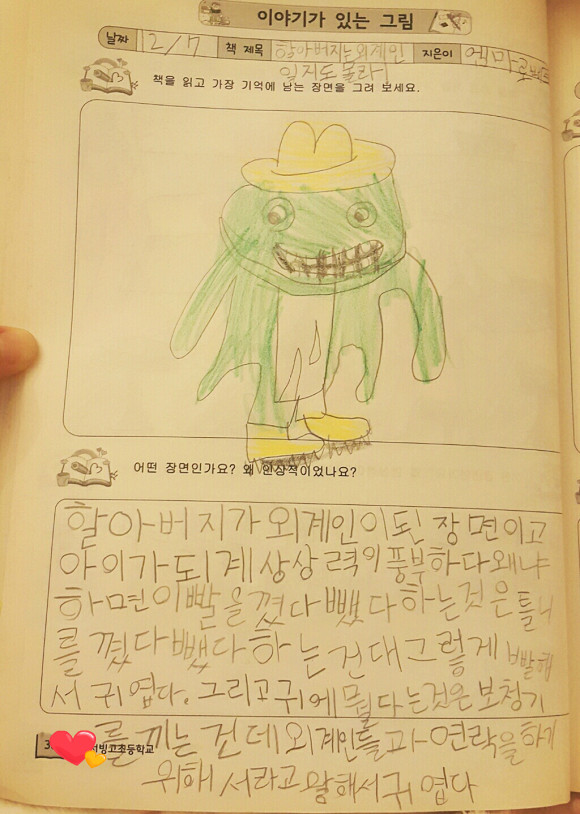 이야기가 있는 그림
날짜 12/7 책 제목 할아버지는 외계인 지은이
일지도 몰라!
책을 읽고 가장 기억에 남는 장면을 그려 보세요.
어떤 장면인가요? 왜 인상적이었나요?
할아버지가 외계인이 된 장면이고
아이가 되게 상상력이 풍부하다 왜냐
하면 이빨을 꼈다 뺐다 하는것은 틀니
를 꼈다 뺐다 하는건대 그렇게 말해
서 귀엽다. 그리고 귀에 뭘다는것은 보청기
를 끼는건데 외계인들과 연락을하기
위해서라고 말해서 귀엽다
서빙고초등학교